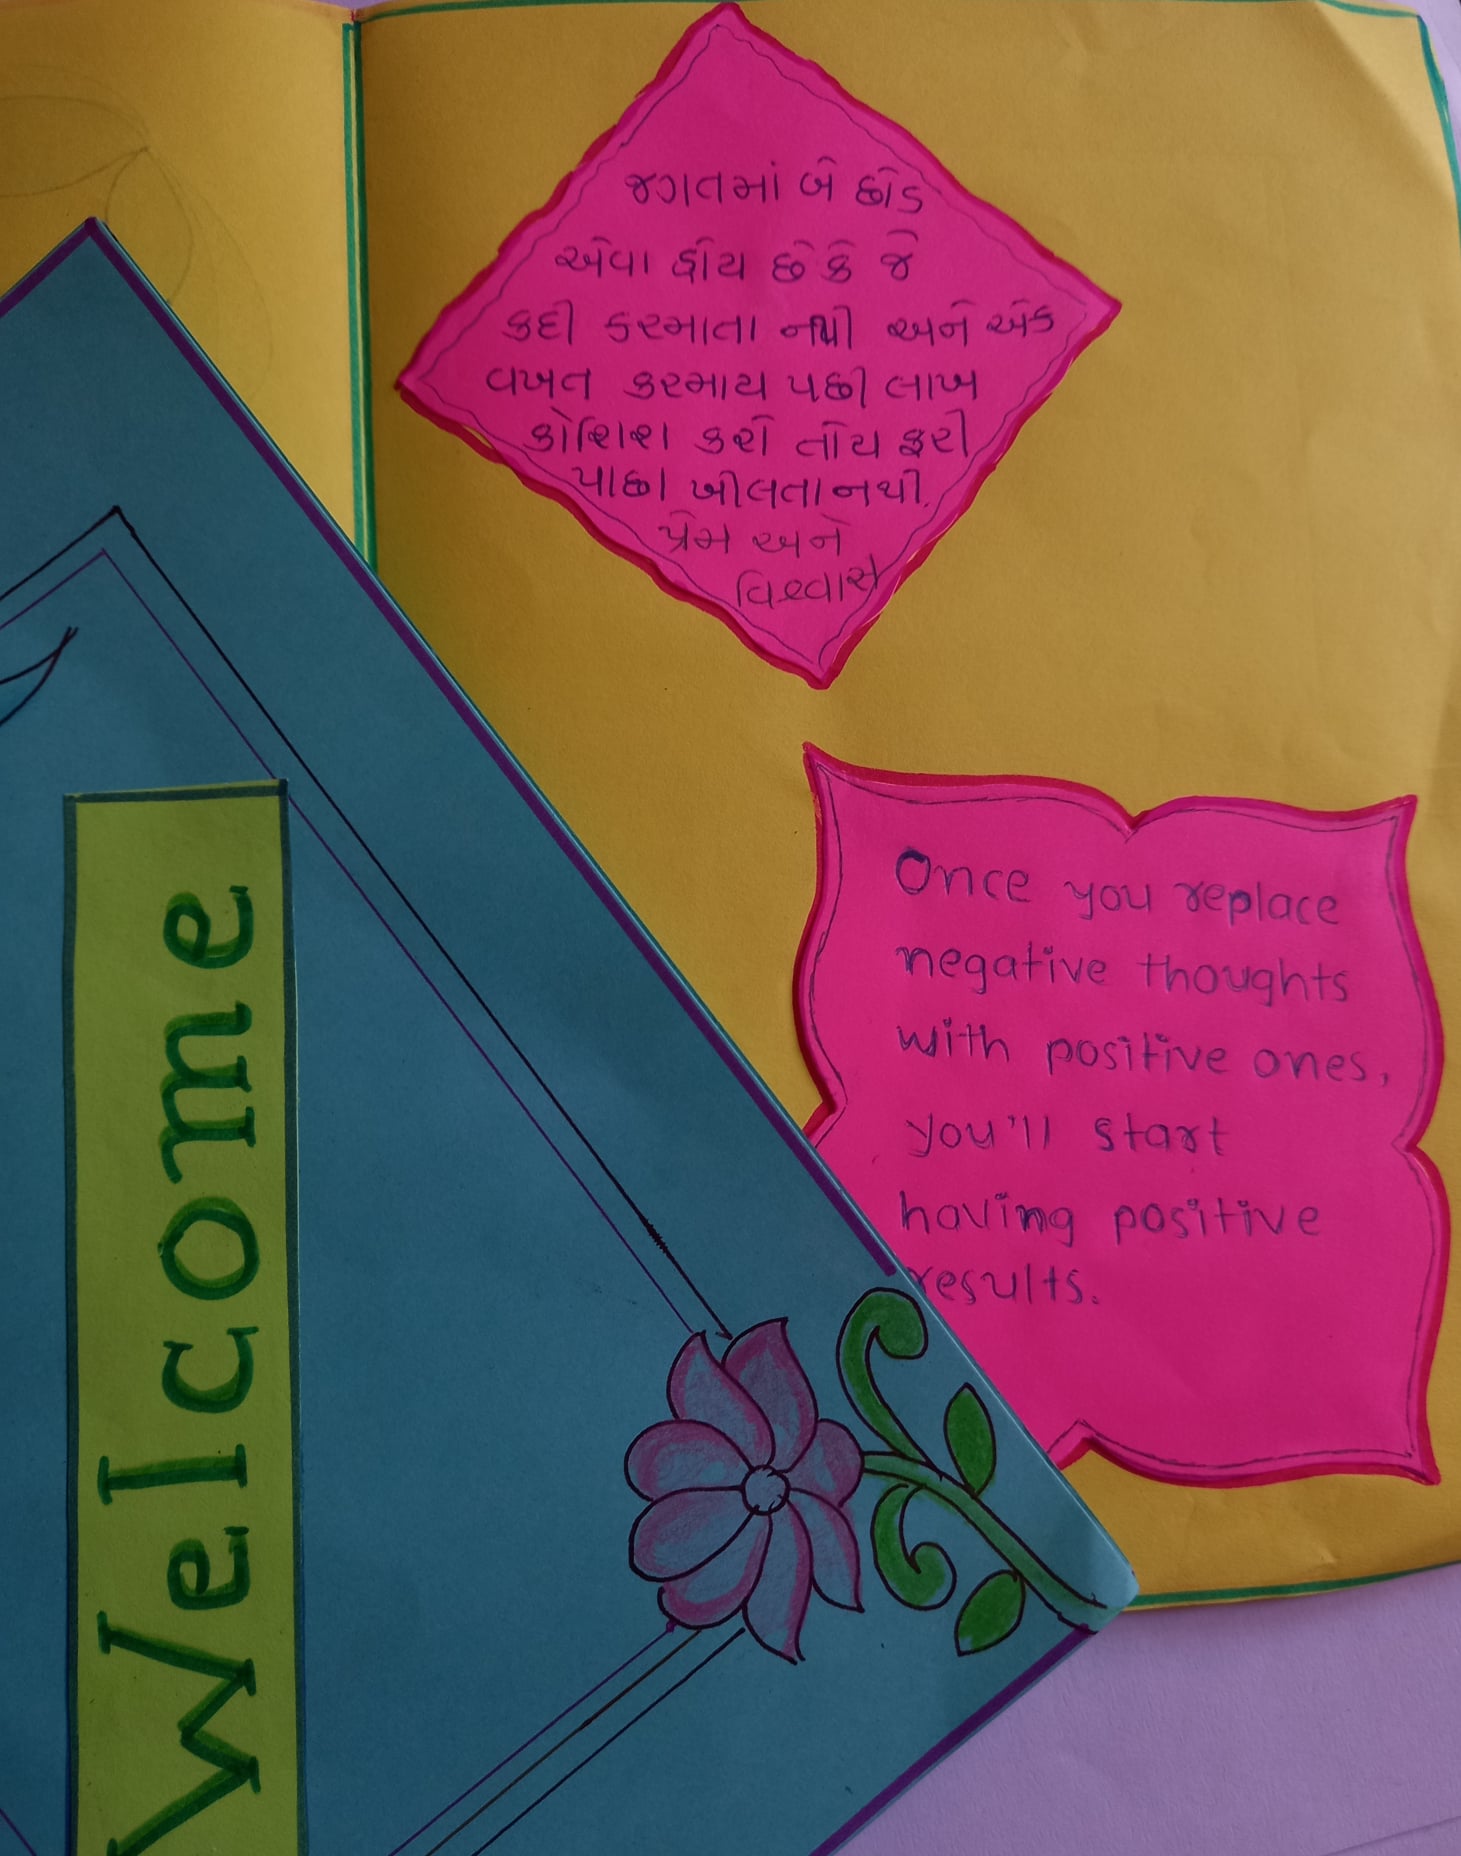 જગતમાં બે છોડ
એવા હોય છે કે જે
કદી કરમાતા નથી અને એક
વખત કરમાય પછી લાખ
કોશિશ કરો તોય ફરી
પાછા ખીલતા નથી.
પ્રેમ અને
વિશ્વાસ
Once you replace
negative thoughts
with positive ones,
you'll start
having positive
results.
Welcome